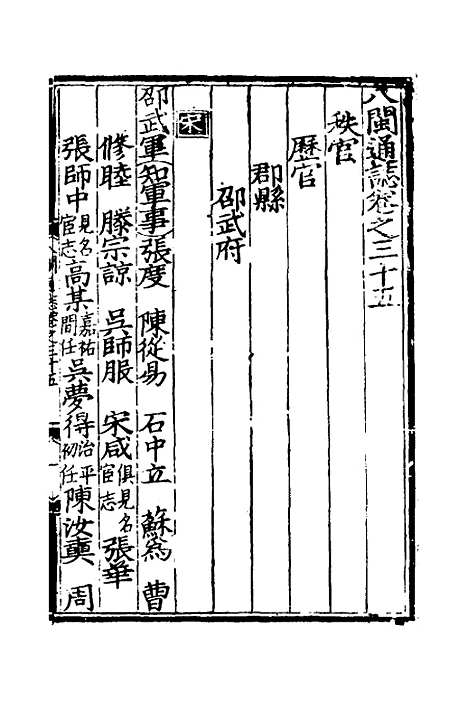 八閩通誌卷之三十五
秩官
歷官
郡縣
邵武府
宋
邵武軍知軍事張度 陳從易 石中立 蘇為 曹
修睦 滕宗諒 吳師服 宋咸俱見名宦志 張華
張師中見名宦志高某嘉祐間任吳夢得治平初任陳汝奭 周